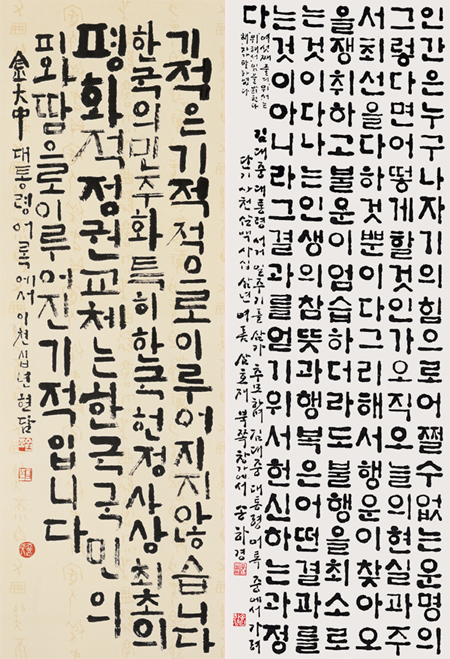 기적은기적적으로이루어지지않습니다
한국의민주화특히한국헌정사상최초의
평화적정권교체는한국국민의
피와땀으로이루어진기적입니다
金大中대통령어록에서이천십년현담
인간은누구나자기의힘으로어쩔수없는운명의
그렇다면어떻게할것인가오직오늘의현실과주
서최선을다하것뿐이다그리해서행운이찾아오
을쟁취하고불운이엄습하더라도불행을최소로
는것이다나는인생의참뜻과행복은어떤결과를
는것이아니라그결과를얻기위서헌신하는과정
다
여섯째줄의위서는
김대중대통령서거일주기를삼가추모하며김대중대통령어록중에서가려
단기사천삼백사십삼년여름삼호재북쪽창가에서송하경